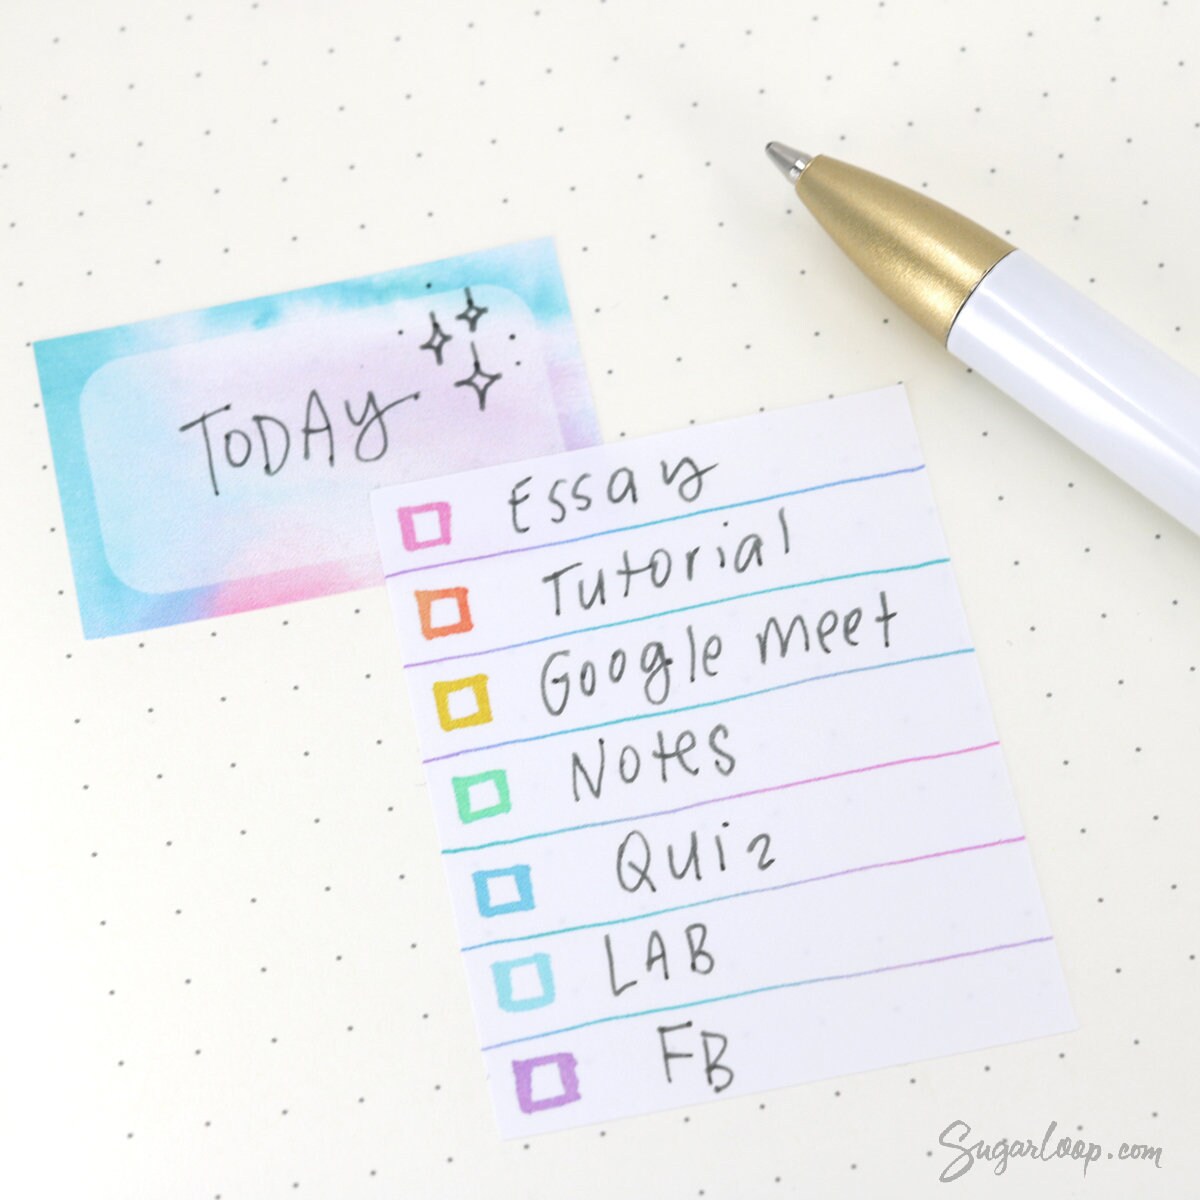 TODAY
Essay
Tutorial
Google meet
Notes
Quiz
LAB
FB
Sugarloop.com